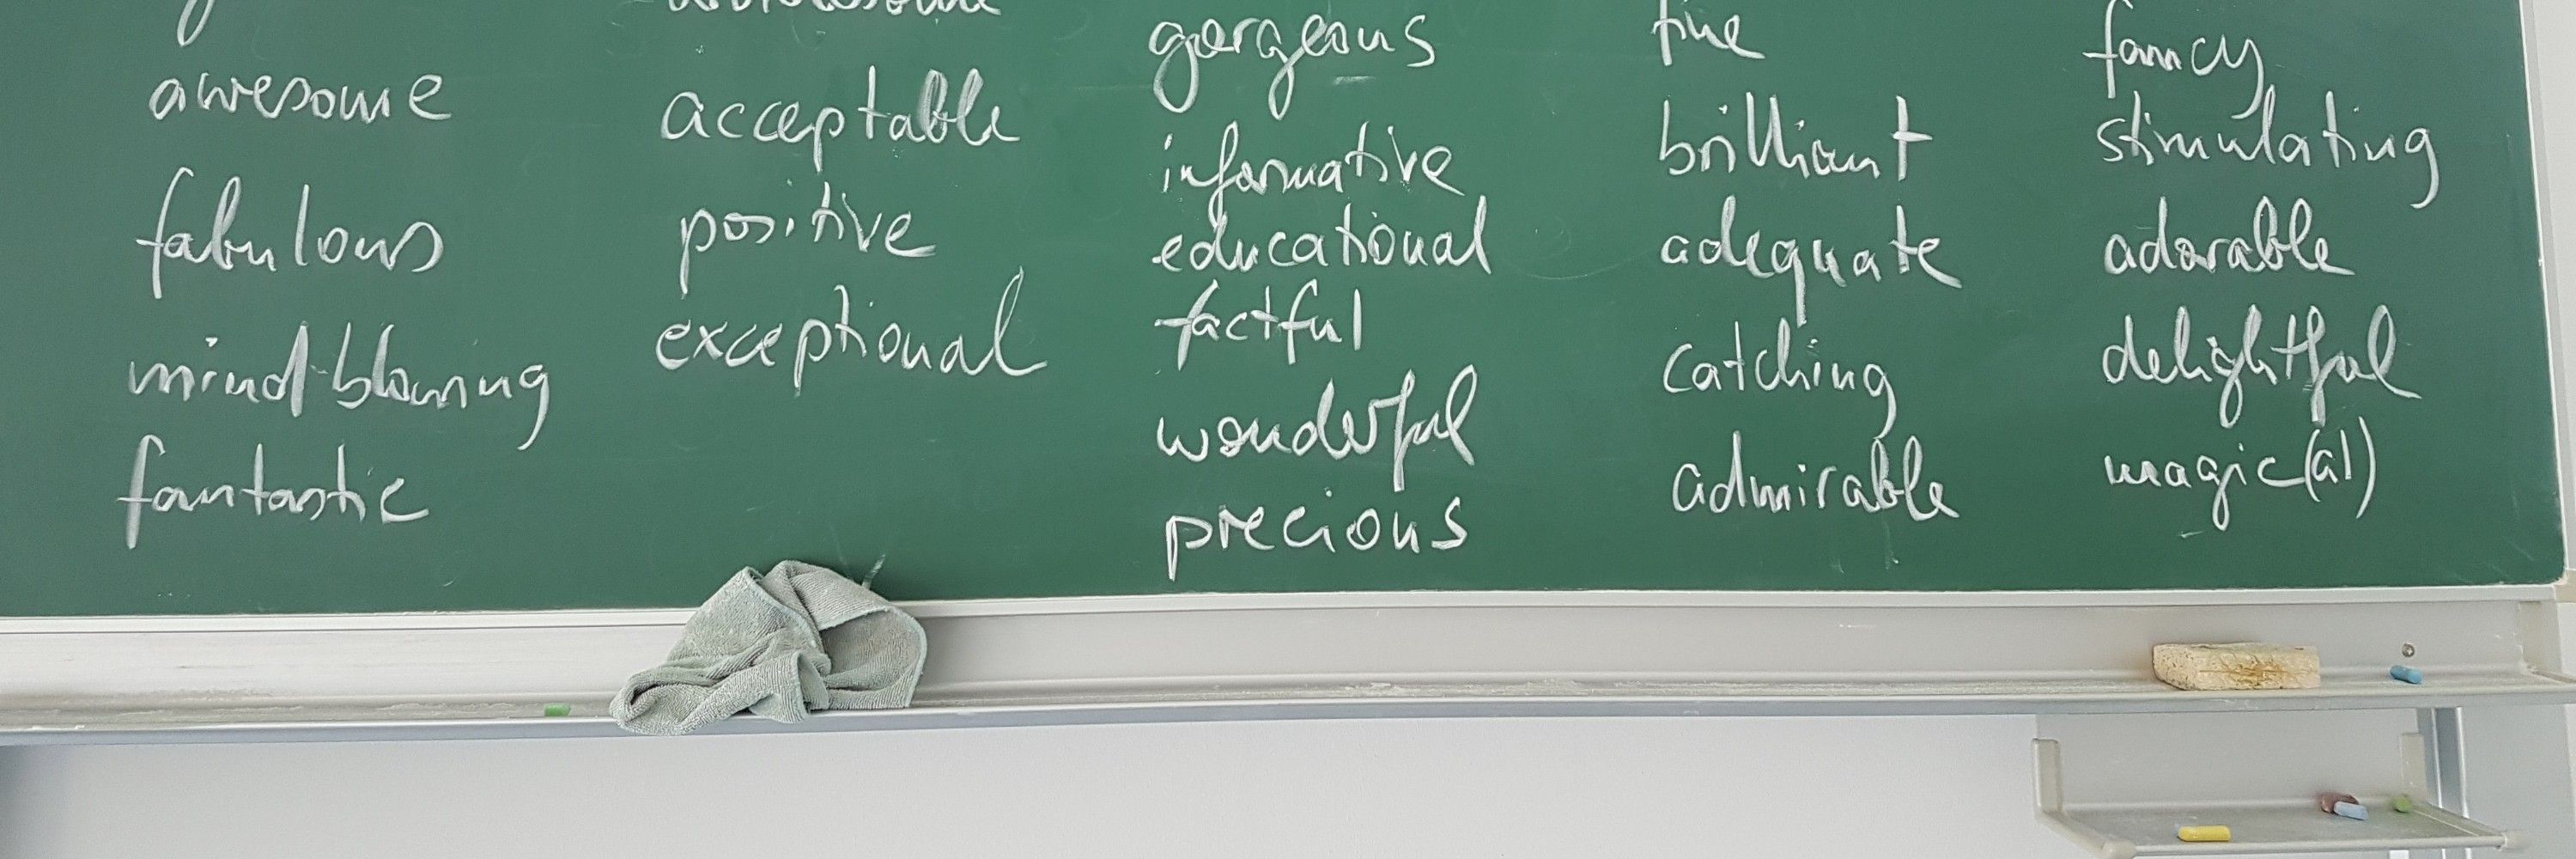 awesome
fabulous
mind-blowing
fantastic
acceptable
positive
exceptional
gorgeous
informative
educational
factful
wonderful
precious
fine
brilliant
adequate
catching
admirable
fancy
stimulating
adorable
delightful
magic(al)